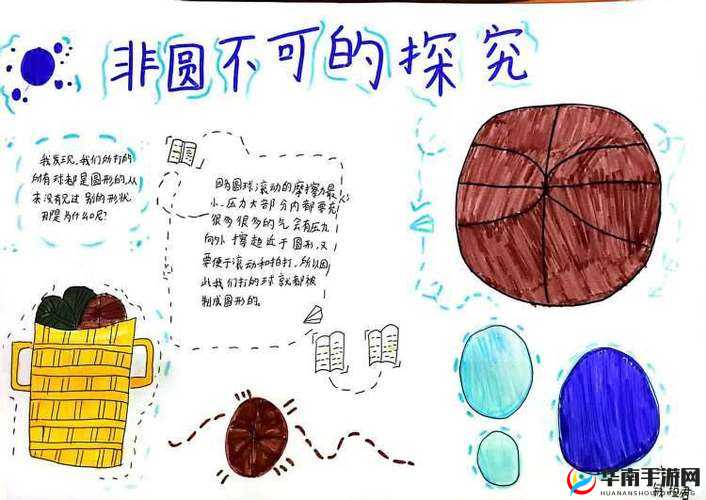 非圆不可的探究
我发现,我们所打的
所有球都是圆形的,从
来没有见过别的形状
那是为什么呢?
因为圆球滚动的摩擦力最
小,压力大部分内部要充
很多很多的气,会有压力
向外撑起近于圆形,又
要便于滚动和拍打,所以因
此我们打的球就都被
制成圆形的。
华南手游网
HUANANSHOUYOUWANG